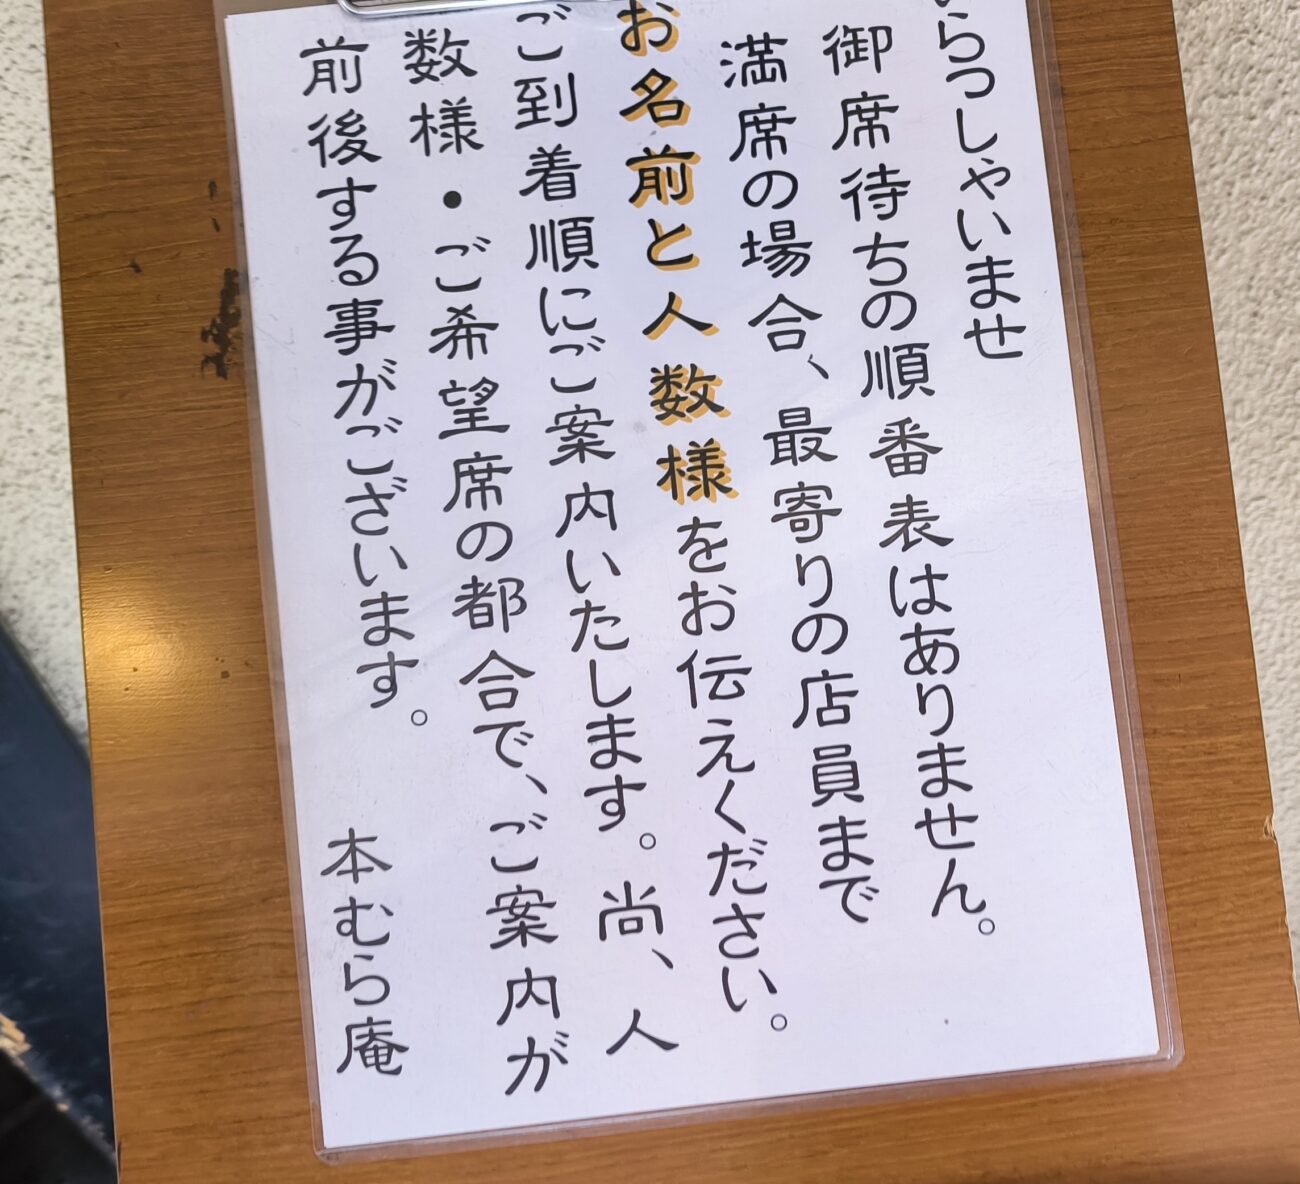 いらっしゃいませ
御席待ちの順番表はありません。
満席の場合、最寄りの店員まで
お名前と人数様をお伝えください。
ご到着順にご案内いたします。尚、人
数様・ご希望席の都合で、ご案内が
前後する事がございます。
本むら庵